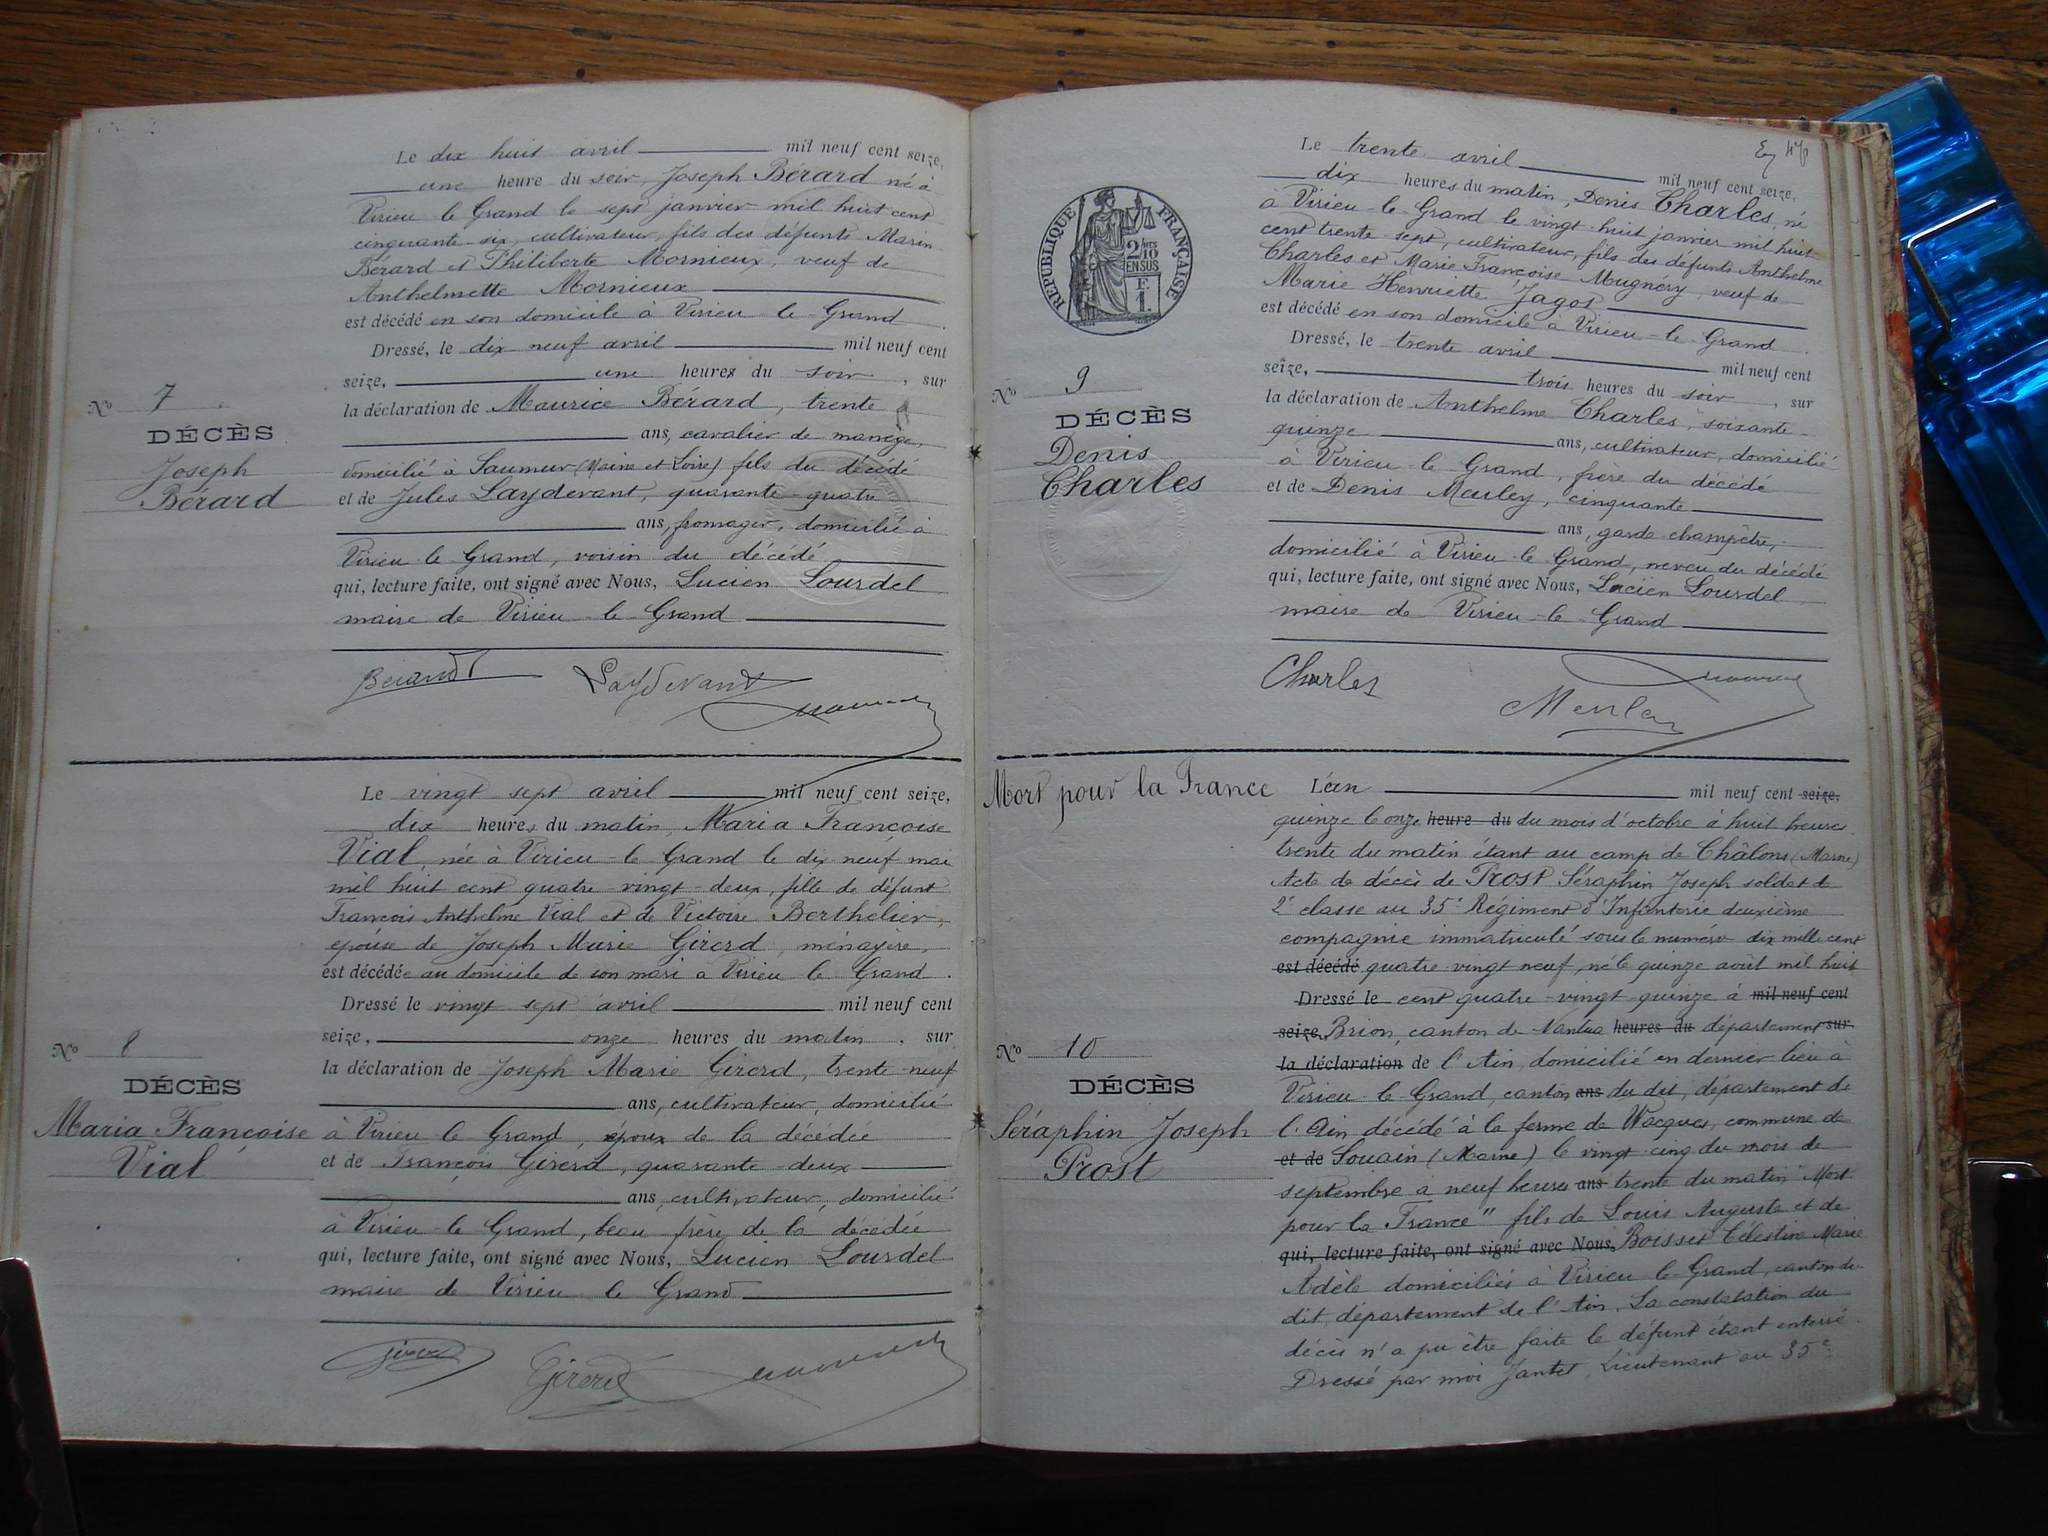 Le dix huit avril mil neuf cent seize,
une heure du soir, Joseph Bérard né à
Virieu le Grand le sept janvier mil huit cent
cinquante-six, cultivateur, fils des défunts Marin
Bérard et Philiberte Mornieux, veuf de
Anthelmette Mornieux
est décédé en son domicile à Virieu le Grand.
Dressé, le dix neuf avril mil neuf cent
seize, une heures du soir, sur
la déclaration de Maurice Bérard, trente
ans, cavalier de manège,
domicilié à Saumur (Maine et Loire) fils du décédé
et de Jules Laydevant, quarante-quatre
ans, fromager, domicilié à
Virieu le Grand, voisin du décédé
qui, lecture faite, ont signé avec Nous, Lucien Lourdel
maire de Virieu-le-Grand
Bérard Laydevant
No 7
DÉCÈS
Joseph
Bérard
Le vingt sept avril mil neuf cent seize,
dix heures du matin, Maria Françoise
Vial, née à Virieu-le Grand le dix-neuf mai
mil huit cent quatre-vingt-deux, fille de défunt
François Anthelme Vial et de Victoire Berthelier,
épouse de Joseph Marie Girerd, ménagère,
est décédée au domicile de son mari à Virieu le Grand.
Dressé le vingt sept avril mil neuf cent
seize, onze heures du matin, sur
la déclaration de Joseph Marie Girerd, trente-neuf
ans, cultivateur, domicilié
à Virieu le Grand, époux de la décédée
et de François Girerd, quarante-deux
ans, cultivateur, domicilié
à Virieu-le Grand, beau-frère de la décédée
qui, lecture faite, ont signé avec Nous, Lucien Lourdel
maire de Virieu le Grand
Girerd Girerd
No 8
DÉCÈS
Maria Françoise
Vial
RÉPUBLIQUE FRANÇAISE
2/10
EN SUS
F.
1.
Le trente avril mil neuf cent seize,
dix heures du matin, Denis Charles, né
à Virieu-le-Grand le vingt-huit janvier mil huit
cent trente-sept, cultivateur, fils des défunts Anthelme
Charles et Marie Françoise Mugnéry, veuf de
Marie Henriette Jagot
est décédé en son domicile à Virieu-le-Grand.
Dressé, le trente avril mil neuf cent
seize, trois heures du soir, sur
la déclaration de Anthelme Charles, soixante-
quinze ans, cultivateur, domicilié
à Virieu-le-Grand, frère du décédé
et de Denis Meuley, cinquante
ans, garde champêtre,
domicilié à Virieu-le-Grand, neveu du décédé
qui, lecture faite, ont signé avec Nous, Lucien Lourdel
maire de Virieu-le-Grand
Charles
No 9
DÉCÈS
Denis
Charles
Mort pour la France
L'an mil neuf cent seize,
quinze le onze heure du du mois d'octobre à huit heures
trente du matin étant au camp de Châlons (Marne)
Acte de décès de Prost Séraphin Joseph soldat de
2e classe au 35e Régiment d'Infanterie deuxième
compagnie immatriculé sous le numéro dix mille cent
est décédé quatre-vingt neuf, né le quinze août mil huit
Dressé le cent quatre-vingt-quinze à mil neuf cent
seize, Brion, canton de Nantua heures du département sur
la déclaration de l'Ain, domicilié en dernier lieu à
Virieu-le-Grand, canton ans du dit, département de
l'Ain décédé à la ferme de Wacques, commune de
et de Souain (Marne) le vingt-cinq du mois de
septembre à neuf heures ans trente du matin "Mort
pour la France" fils de Louis Auguste et de
qui, lecture faite, ont signé avec Nous, Boisset Célestine Marie
Adèle domiciliés à Virieu le-Grand, canton du
dit, département de l'Ain. La constatation du
décès n'a pu être faite le défunt étant enterré.
Dressé par moi Jantet, Lieutenant au 35e
No 10
DÉCÈS
Séraphin Joseph
Prost